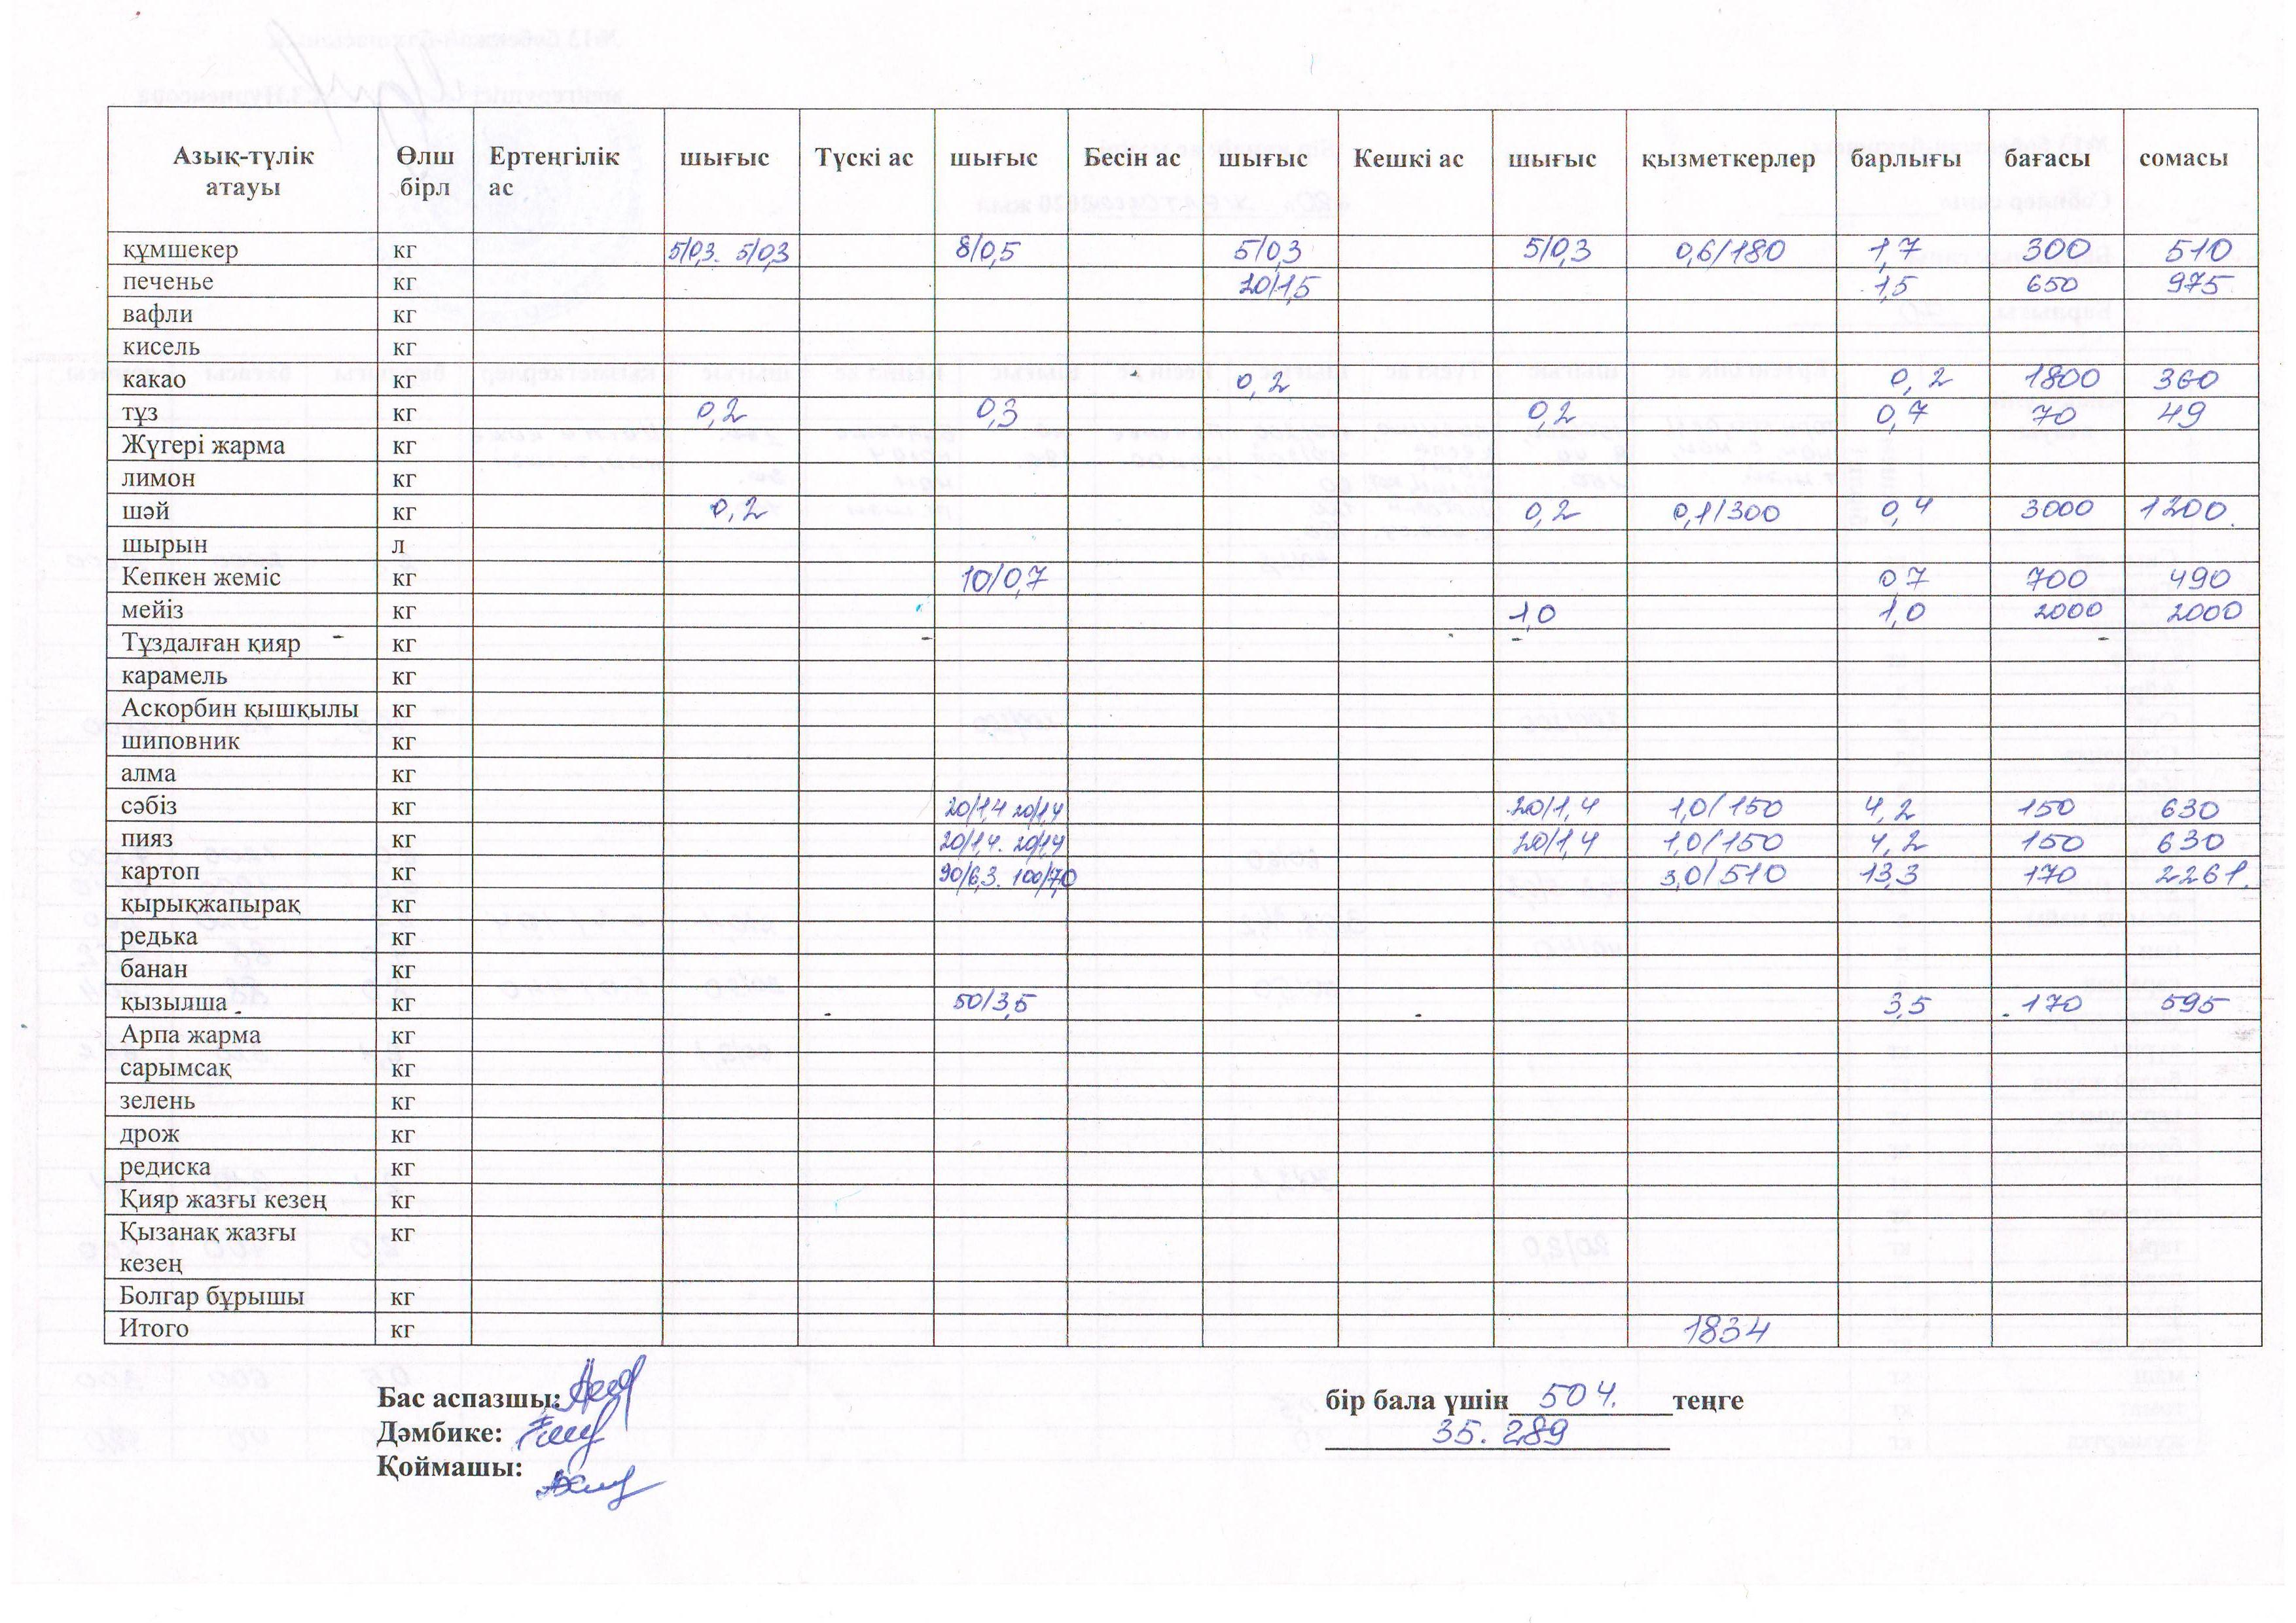 Азық-түлік атауы Өлш бірл Ертеңгілік ас шығыс Түскі ас шығыс Бесін ас шығыс Кешкі ас шығыс қызметкерлер барлығы бағасы сомасы
құмшекер кг 5/0,3. 5/0,3 8/0,5 5/0,3 5/0,3 0,6/180 1,7 300 510
печенье кг 20/1,5 1,5 650 975
вафли кг
кисель кг
какао кг 0,2 0,2 1800 360
тұз кг 0,2 0,3 0,2 0,7 70 49
Жүгері жарма кг
лимон кг
шәй кг 0,2 0,2 0,1/300 0,4 3000 1200.
шырын л
Кепкен жеміс кг 10/0,7 0,7 700 490
мейіз кг 1,0 1,0 2000 2000
Тұздалған қияр кг
карамель кг
Аскорбин қышқылы кг
шиповник кг
алма кг
сәбіз кг 20/1,4 20/1,4 20/1,4 1,0/150 4,2 150 630
пияз кг 20/1,4. 20/1,4 20/1,4 1,0/150 4,2 150 630
картоп кг 90/6,3. 100/7,0 3,0/510 13,3 170 2261.
қырықжапырақ кг
редька кг
банан кг
қызылша кг 50/3,5 3,5 170 595
Арпа жарма кг
сарымсақ кг
зелень кг
дрож кг
редиска кг
Қияр жазғы кезең кг
Қызанақ жазғы кг
кезең
Болгар бұрышы кг
Итого кг 1834
Бас аспазшы: бір бала үшін 504. теңге
Дәмбике: 35. 289
Қоймашы: